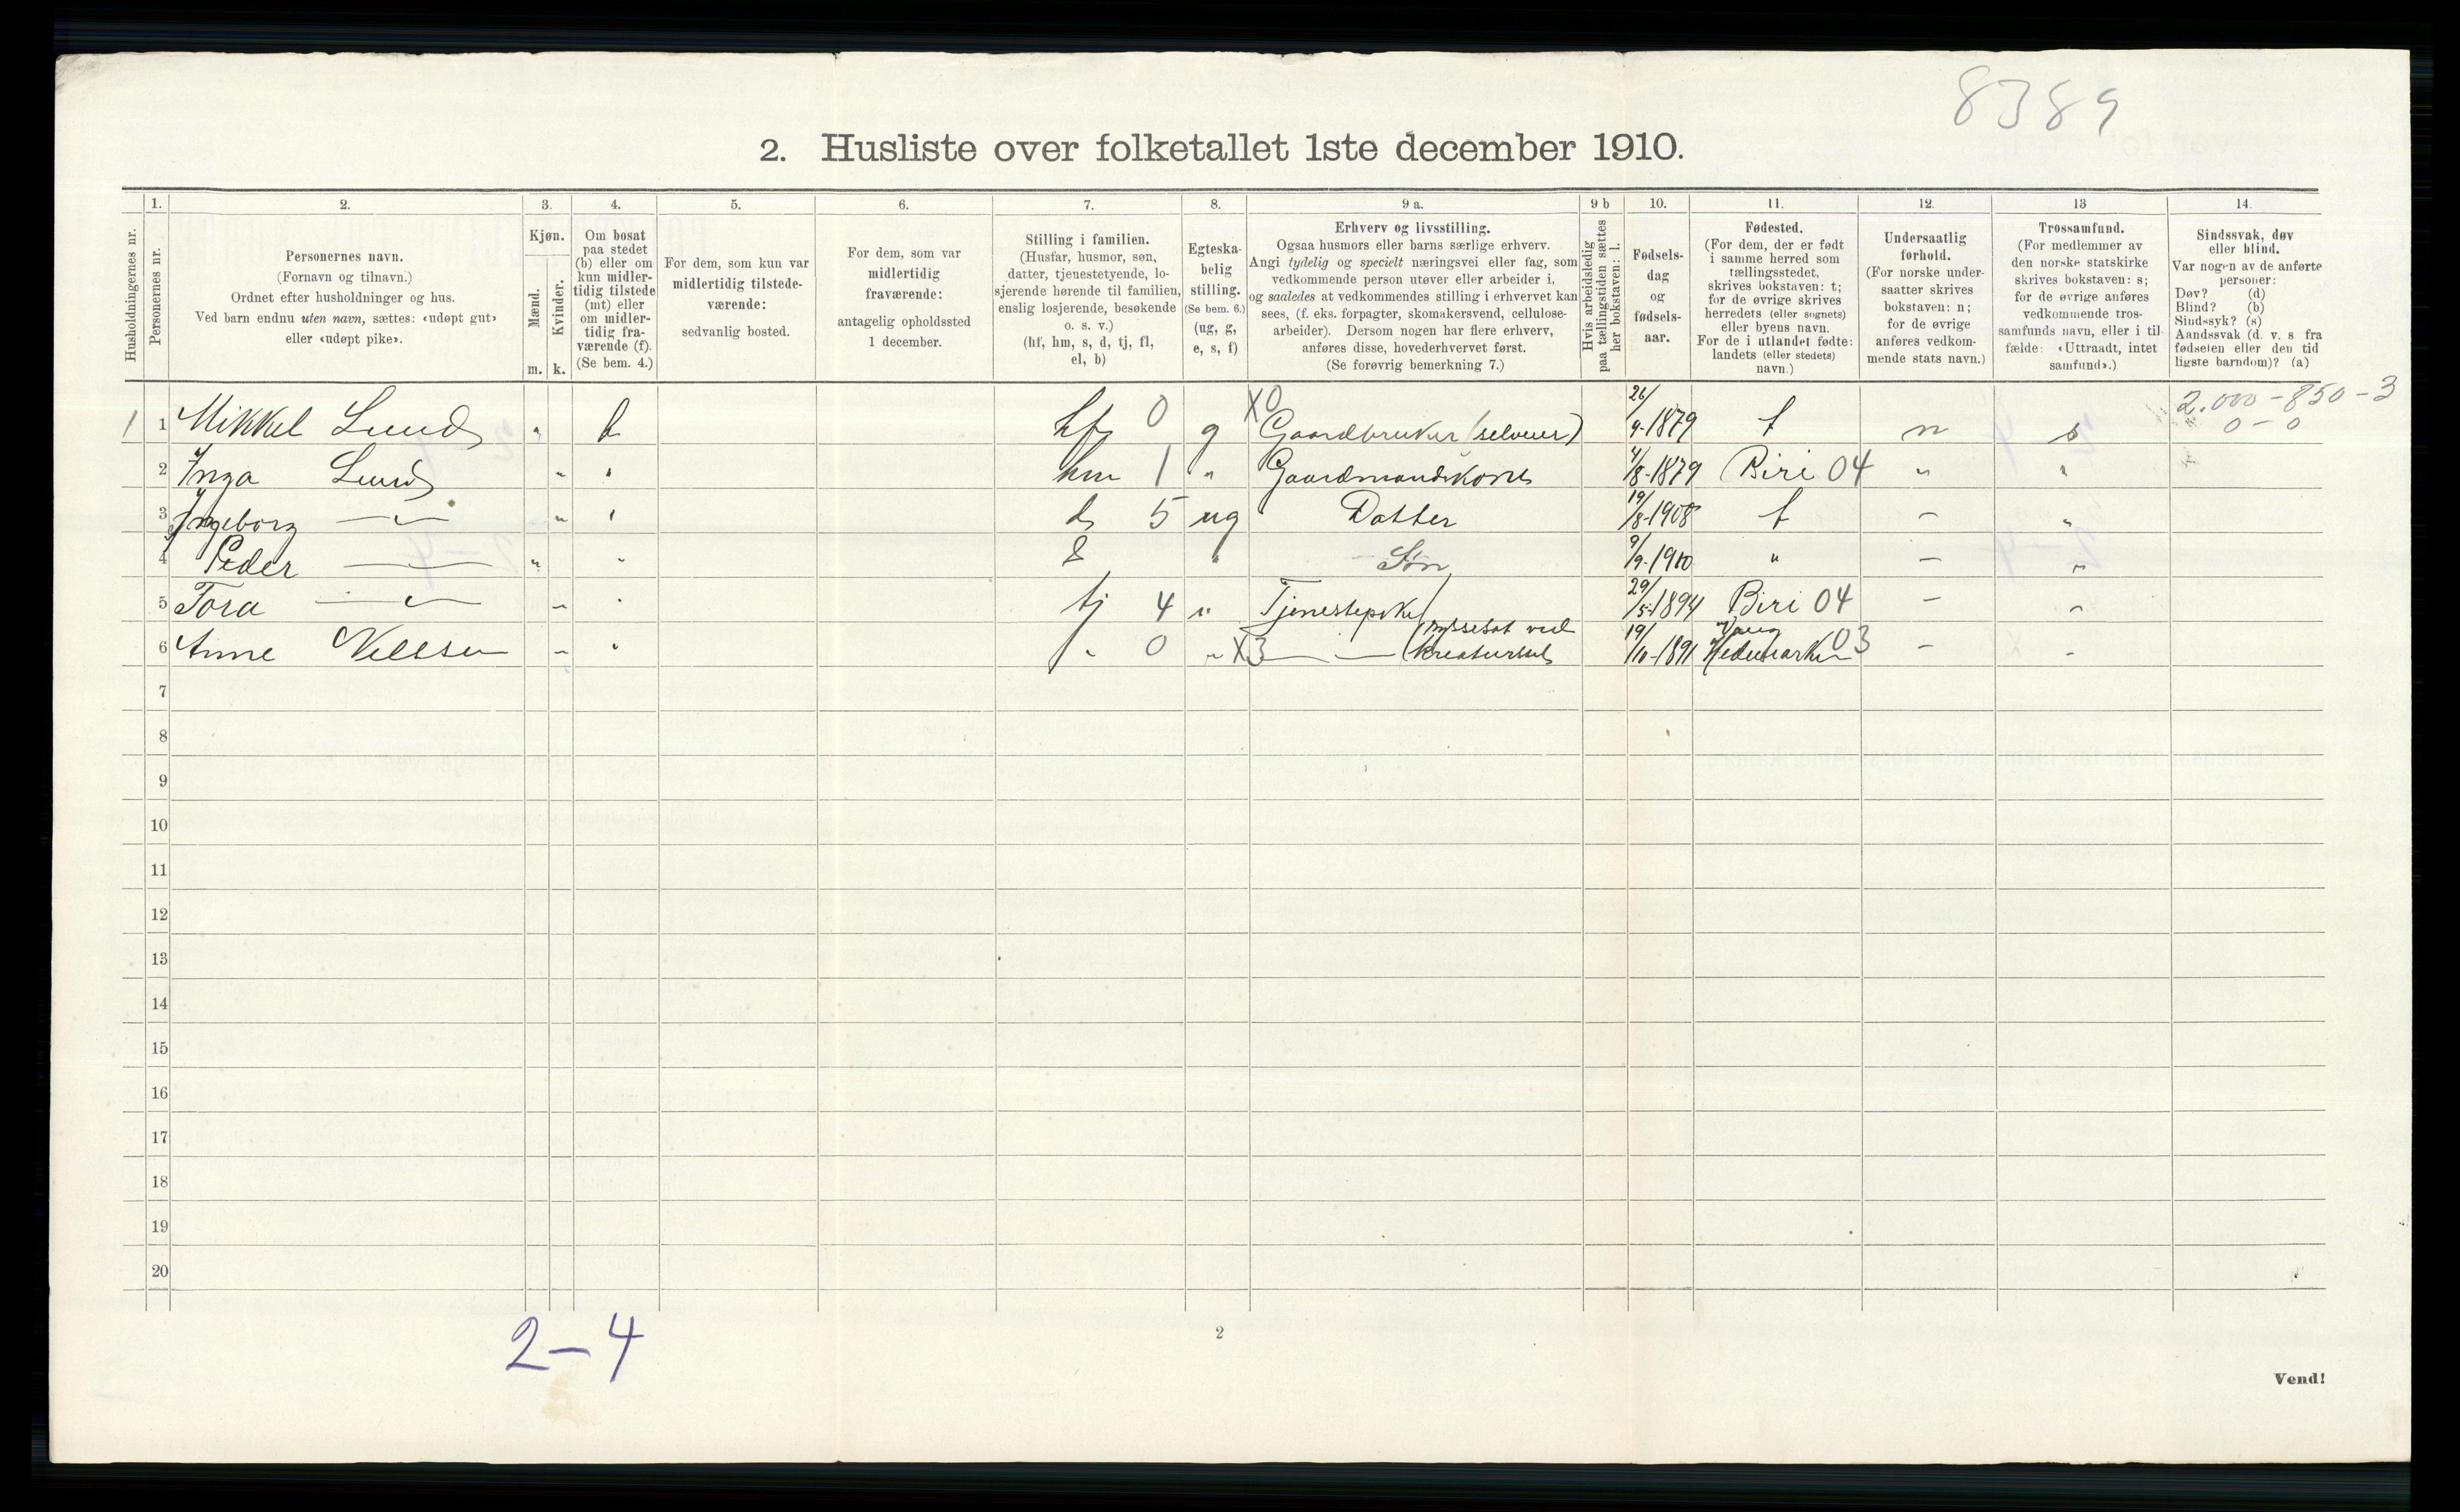 8389
2. Husliste over folketallet 1ste december 1910.
1. 2. 3. 4. 5. 6. 7. 8. 9 a. 9 b 10. 11. 12. 13 14.
Husholdningernes nr.
Personernes nr.
Personernes navn.
(Fornavn og tilnavn.)
Ordnet efter husholdninger og hus.
Ved barn endnu uten navn, sættes: «udøpt gut»
eller «udøpt pike».
Kjøn.
Mænd.
Kvinder.
m. k.
Om bosat
paa stedet
(b) eller om
kun midler-
tidig tilstede
(mt) eller
om midler-
tidig fra-
værende (f).
(Se bem. 4.)
For dem, som kun var
midlertidig tilstede-
værende:
sedvanlig bosted.
For dem, som var
midlertidig
fraværende:
antagelig opholdssted
1 december.
Stilling i familien.
(Husfar, husmor, søn,
datter, tjenestetyende, lo-
sjerende hørende til familien,
enslig losjerende, besøkende
o. s. v.)
(hf, hm, s, d, tj, fl,
el, b)
Egteska-
belig
stilling.
(Se bem. 6.)
(ug, g,
e, s, f)
Erhverv og livsstilling.
Ogsaa husmors eller barns særlige erhverv.
Angi tydelig og specielt næringsvei eller fag, som
vedkommende person utøver eller arbeider i,
og saaledes at vedkommendes stilling i erhvervet kan
sees, (f. eks. forpagter, skomakersvend, cellulose-
arbeider). Dersom nogen har flere erhverv,
anføres disse, hovederhvervet først.
(Se forøvrig bemerkning 7.)
Hvis arbeidsledig
paa tællingstiden sættes
her bokstaven: l.
Fødsels-
dag
og
fødsels-
aar.
Fødested.
(For dem, der er født
i samme herred som
tællingsstedet,
skrives bokstaven: t;
for de øvrige skrives
herredets (eller sognets)
eller byens navn.
For de i utlandet fødte:
landets (eller stedets)
navn.)
Undersaatlig
forhold.
(For norske under-
saatter skrives
bokstaven: n;
for de øvrige
anføres vedkom-
mende stats navn.)
Trossamfund.
(For medlemmer av
den norske statskirke
skrives bokstaven: s;
for de øvrige anføres
vedkommende tros-
samfunds navn, eller i til-
fælde: «Uttraadt, intet
samfund».)
Sindssvak, døv
eller blind.
Var nogen av de anførte
personer:
Døv? (d)
Blind? (b)
Sindssyk? (s)
Aandssvak (d. v. s fra
fødselen eller den tid
ligste barndom)? (a)
2.000 - 850 - 3
0 - 0
1 1 Mikkel Lund " b hf 0 g X0 Gaardbruker (selveier) 26/9-1879 t n s
2 Inga Lund " " hm 1 " Gaardmandskone 4/8-1879 Biri 04 " "
3 Ingeborg —"— " " d 5 ug Datter 19/8-1908 t - "
4 Peder —"— " " s " Søn 9/9-1910 " - "
5 Tora —"— " " tj 4 " Tjenestepike 29/5-1894 Biri 04 - "
6 Anne " " " 0 " X3 —"— (sysselsat ved kreaturstel 19/10-1891 Vang Hedemarken 03 - "
7
8
9
10
11
12
13
14
15
16
17
18
19
20
2-4
2
Vend!